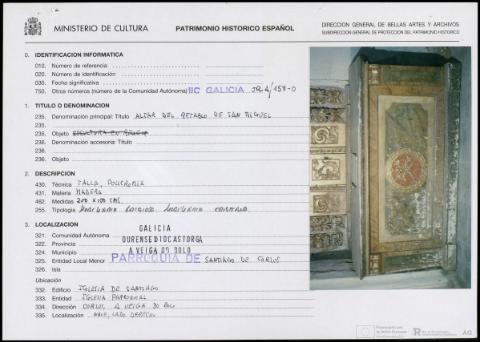 MINISTERIO DE CULTURA PATRIMONIO HISTORICO ESPAÑOL DIRECCION GENERAL DE BELLAS ARTES Y ARCHIVOS
SUBDIRECCION GENERAL DE PROTECCION DEL PATRIMONIO HISTORICO
0. IDENTIFICACION INFORMATICA
010. Número de referencia
020. Número de identificación
030. Fecha significativa
750. Otros números (número de la Comunidad Autónoma) IIC GALICIA
1. TITULO O DENOMINACION
235. Denominación principal: Título ALTAR DEL RETABLO DE SAN MIGUEL
235.
235. Objeto
236. Denominación accesoria: Título
236.
236. Objeto
2. DESCRIPCION
430. Técnica TALLA, POLICROMIA
431. Materia MADERA
462. Medidas 200 x 100 CMS.
255. Tipología MOBILIARIO RELIGIOSO
3. LOCALIZACION
321. Comunidad Autónoma GALICIA
322. Provincia OURENSE DIOC ASTORGA
324. Municipio A VEIGA DO BOLO
325. Entidad Local Menor PARROQUIA DE SANTIAGO DE CORZOS
326. Isla
Ubicación
332. Edificio IGLESIA DE SANTIAGO
333. Entidad IGLESIA PARROQUIAL
334. Dirección CORZOS A VEIGA DO BOLO
335. Localización NAVE, LADO DERECHO
AG